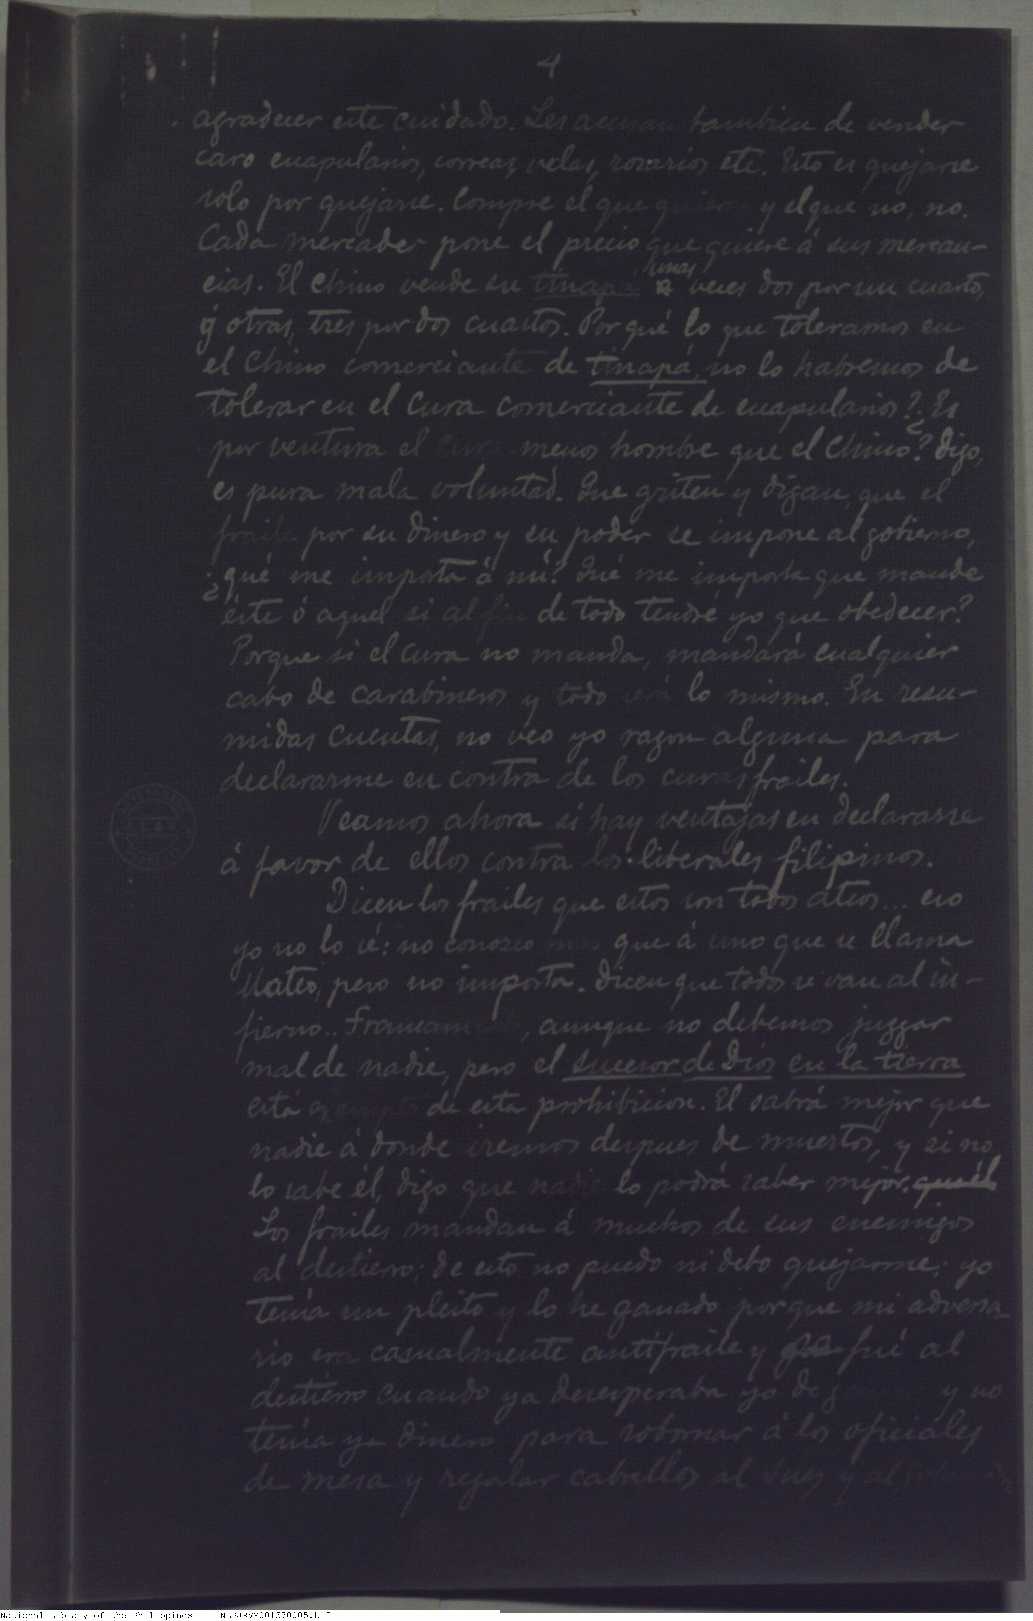 4
agradecer este cuidado. Les acusan tambien de vender
caro escapularios, correas, velas, rosarios etc. Esto es quejarse
solo por quejarse. Compre el que quiera y el que no, no.
Cada mercader pone el precio que quiere á sus mercan-
cias. El Chino vende su tinapá unas veces dos por un cuarto,
y otras, tres por dos cuartos. Por qué lo que toleramos en
el Chino comerciante de tinapá, no lo habremos de
tolerar en el Cura comerciante de escapularios? ¿Es
por ventura el Cura menos hombre que el Chino? Digo,
es pura mala voluntad. Que griten y digan que el
fraile por su dinero y su poder se impone al gobierno,
¿qué me importa á mí? Qué me importa que mande
éste ó aquel si al fin de todo tendré yo que obedecer?
Porque si el cura no manda, mandará cualquier
cabo de carabineros y todo será lo mismo. En resu-
midas cuentas, no veo yo razon alguna para
declararme en contra de los curas frailes.
Veamos ahora si hay ventajas en declararse
á favor de ellos contra los liberales filipinos.
Dicen los frailes que estos son todos ateos... eso
yo no lo sé: no conozco mas que á uno que se llama
Mateo, pero no importa. Dicen que todos se van al in-
fierno.. Francamente, aunque no debemos juzgar
mal de nadie, pero el sucesor de Dios en la tierra
está de esta prohibicion. El sabrá mejor que
nadie á donde iremos despues de muertos, y si no
lo sabe él, digo que nadie lo podrá saber mejor. quél
Los frailes mandan á muchos de sus enemigos
al destierro; de esto no puedo ni debo quejarme; yo
tenía un pleito y lo he ganado porque mi adversa
rio era casualmente antifraile y fué al
destierro cuando ya desesperaba yo de y no
tenía ya dinero para sobornar á los oficiales
de mesa y regalar caballos al Juez y al